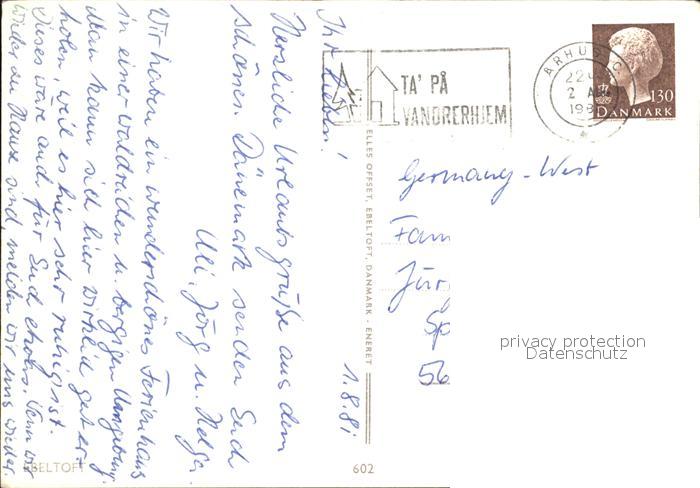 Ihr Lieben!
1.8.81
Herzliche Urlaubsgrüße aus dem
schönen Dänemark senden Euch
Uli, Jörg u. Helga.
Wir haben ein wunderschönes Ferienhaus
in einer waldreichen u. bergigen Umgebung.
Man kann sich hier wirklich gut er-
holen, weil es hier sehr ruhig ist.
Dieses wäre auch für Euch etwas. Wenn wir
wieder zu Hause sind melden wir uns wieder.
EBELTOFT
602
ELLES OFFSET, EBELTOFT, DANMARK - ENERET
TA' PÅ
VANDRERHJEM
ARHUS C
2
130
DANMARK
Germany-West
Fam
Jür
Sp
56
privacy protection
Datenschutz